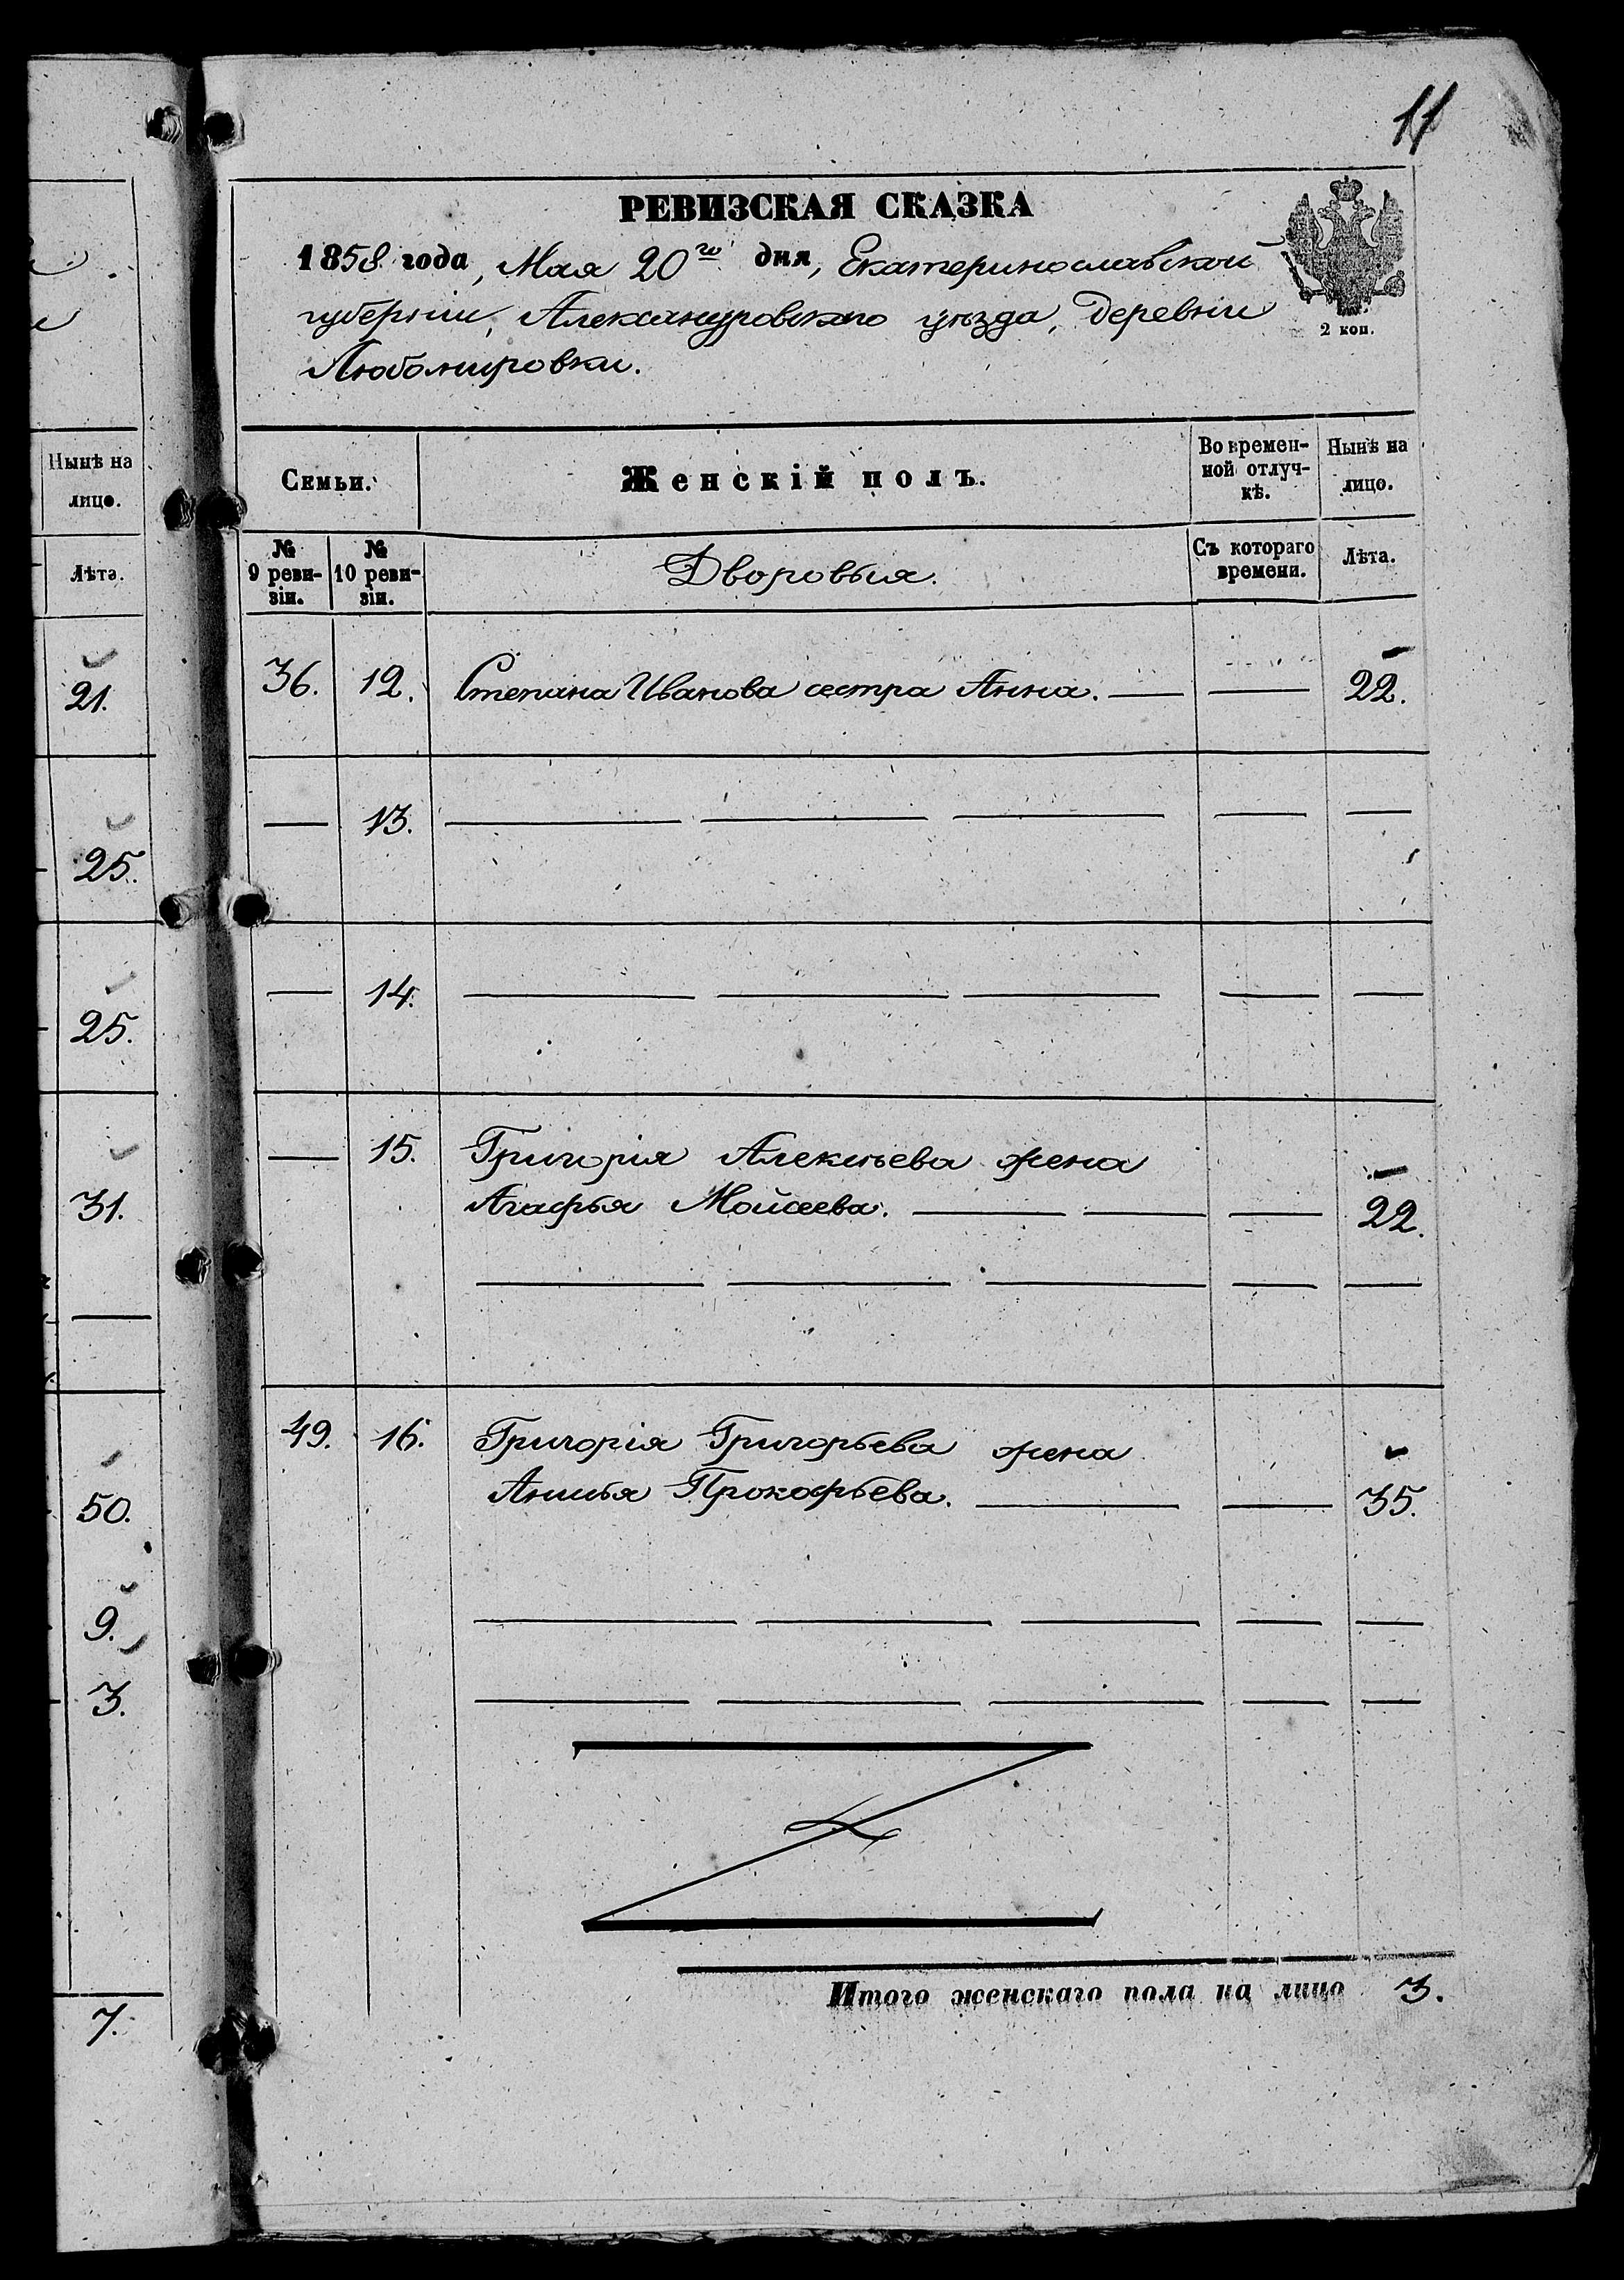 11
РЕВИЗСКАЯ СКАЗКА
1858 года, Мая 20го дня, Екатеринославской
губерніи, Александровского уѣзда, деревни
Любомировки.
2 коп.
Нынѣ на
лицо.
Лѣта.
21.
25.
25.
31.
50.
9.
3.
7.
Семьи.
Женскій полъ.
Во времен-
ной отлуч-
кѣ.
Нынѣ на
лицо.
№
9 реви-
зіи.
№
10 реви-
зіи.
Дворовыя.
Съ котораго
времени.
Лѣта.
36. 12. Степана Иванова сестра Анна. — — 22.
— 13. — — — — —
— 14. — — — — —
— 15. Григорія Алексѣева жена
Агафья Мойсеева. — — — 22.
— — — — —
49. 16. Григорія Григорьева жена
Анисья Прокофьева. — — 35.
— — — — —
— — — — —
Итого женскаго пола на лицо 3.